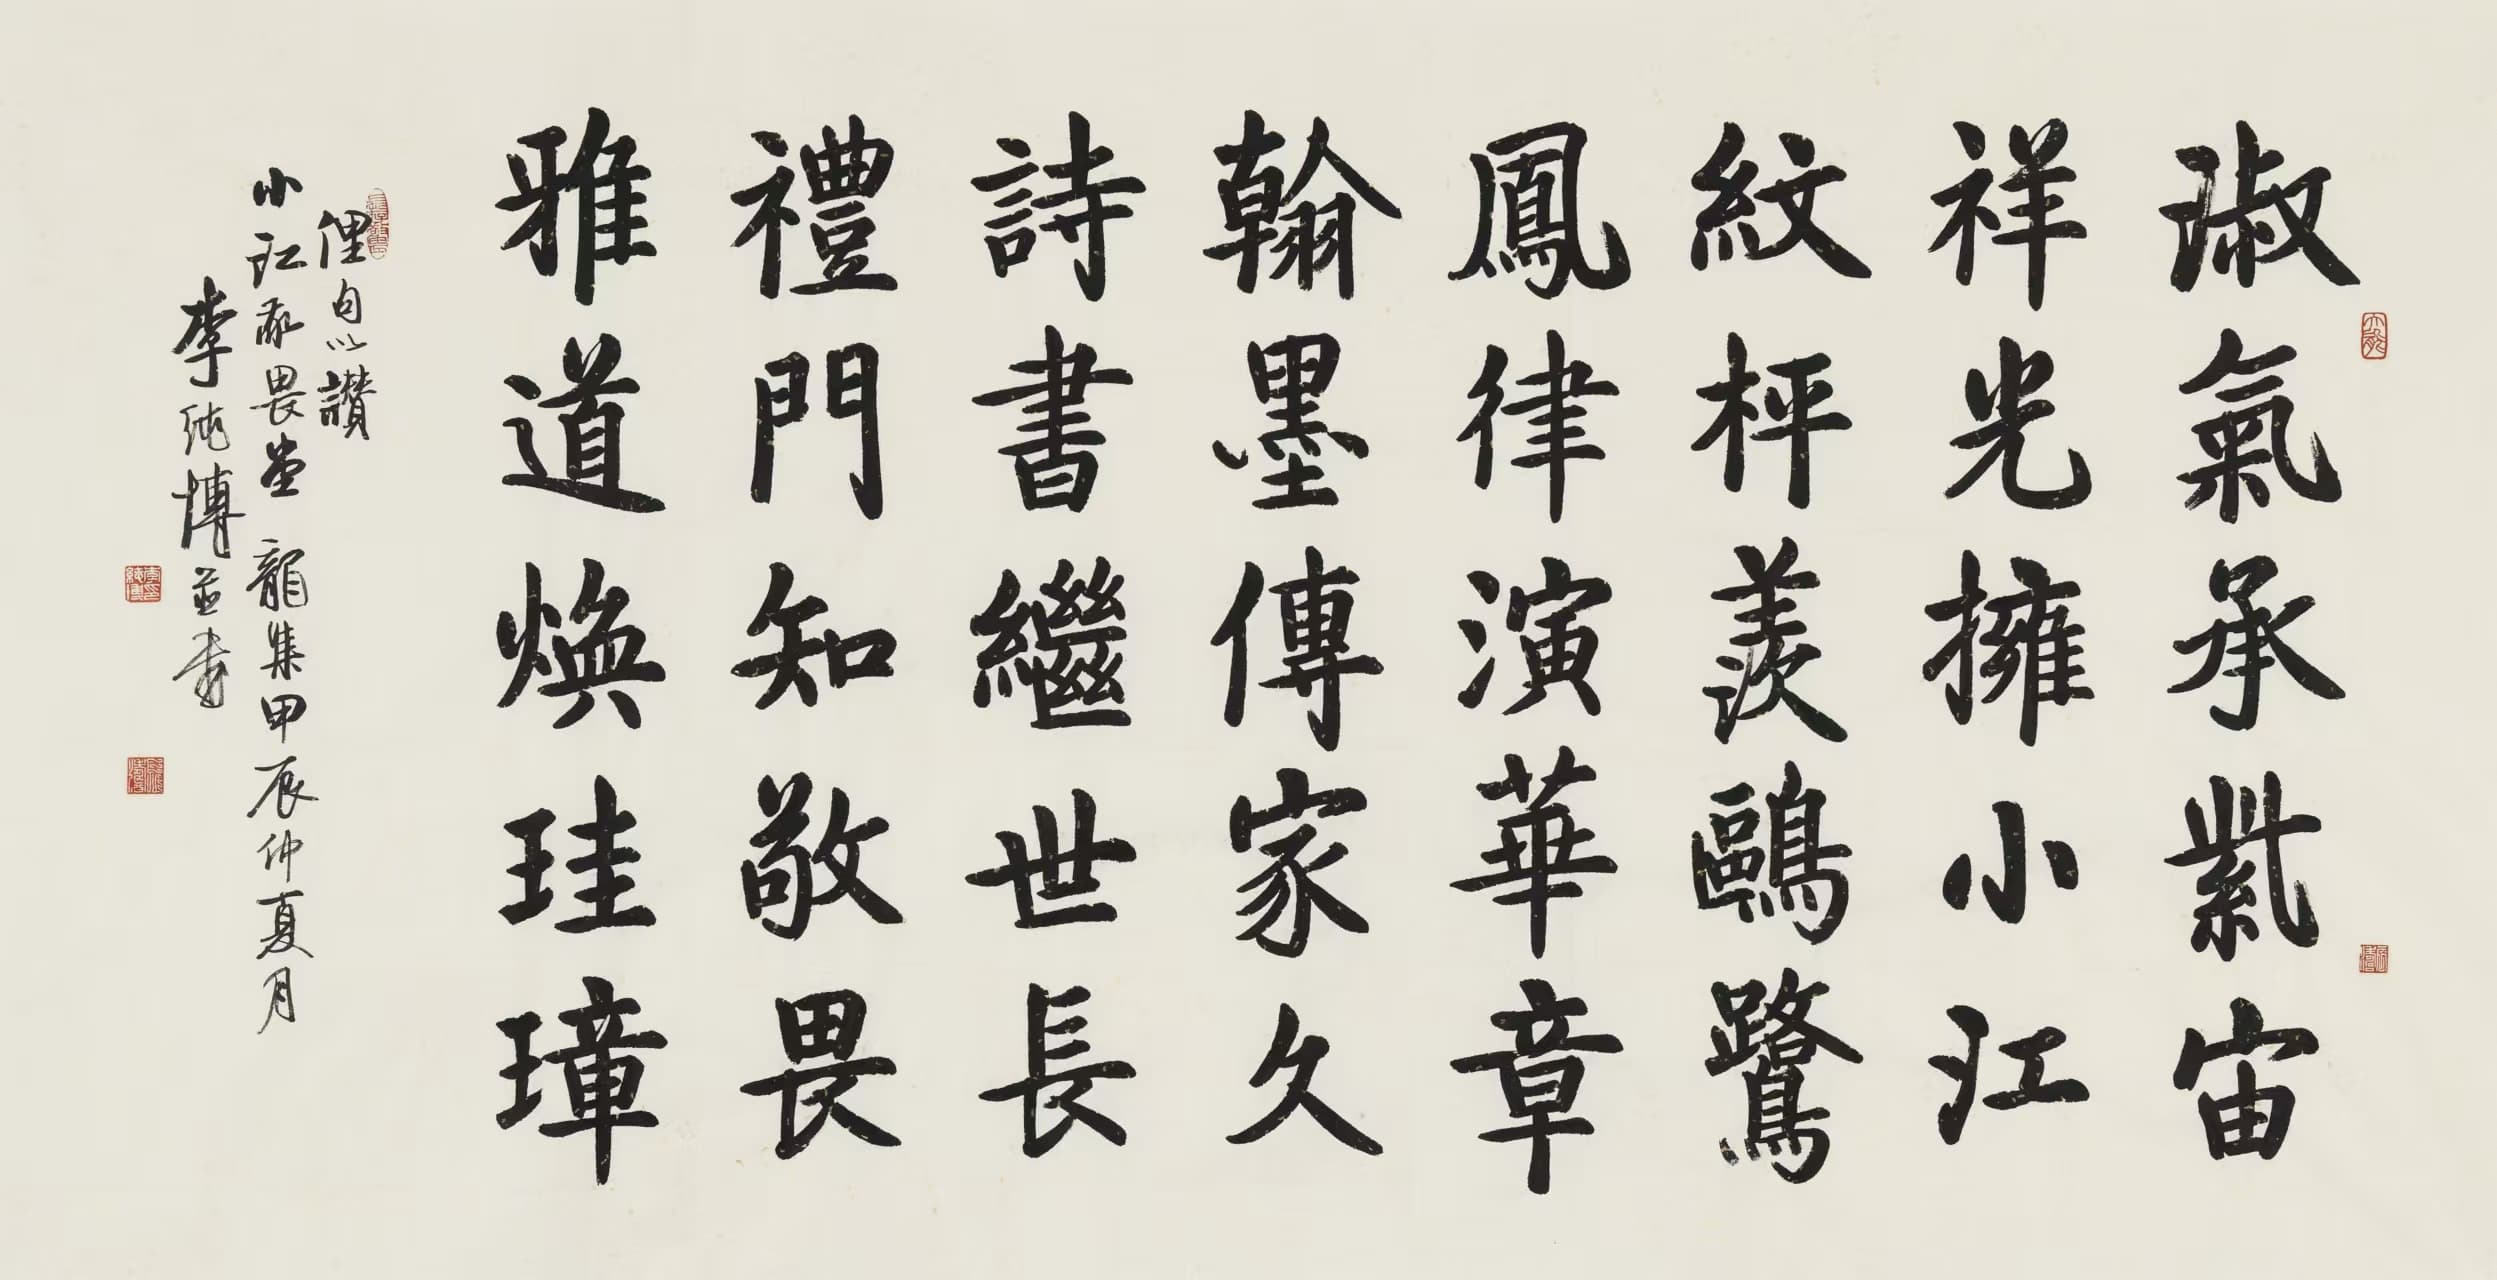 淑氣承紫宙
祥光擁小江
紋枰羨鷗鷺
鳳律演華章
翰墨傳家久
詩書繼世長
禮門知敬畏
雅道煥珪璋
俚句以讚
小江敬畏堂 龍集甲辰仲夏月
李純博並書